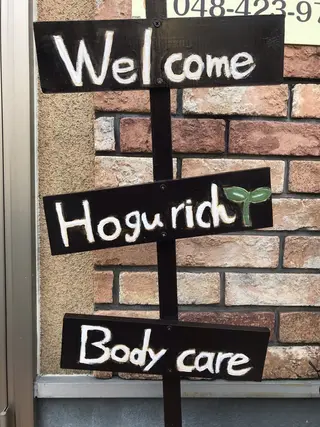 048-423-9
Welcome
Hogurich
Body care